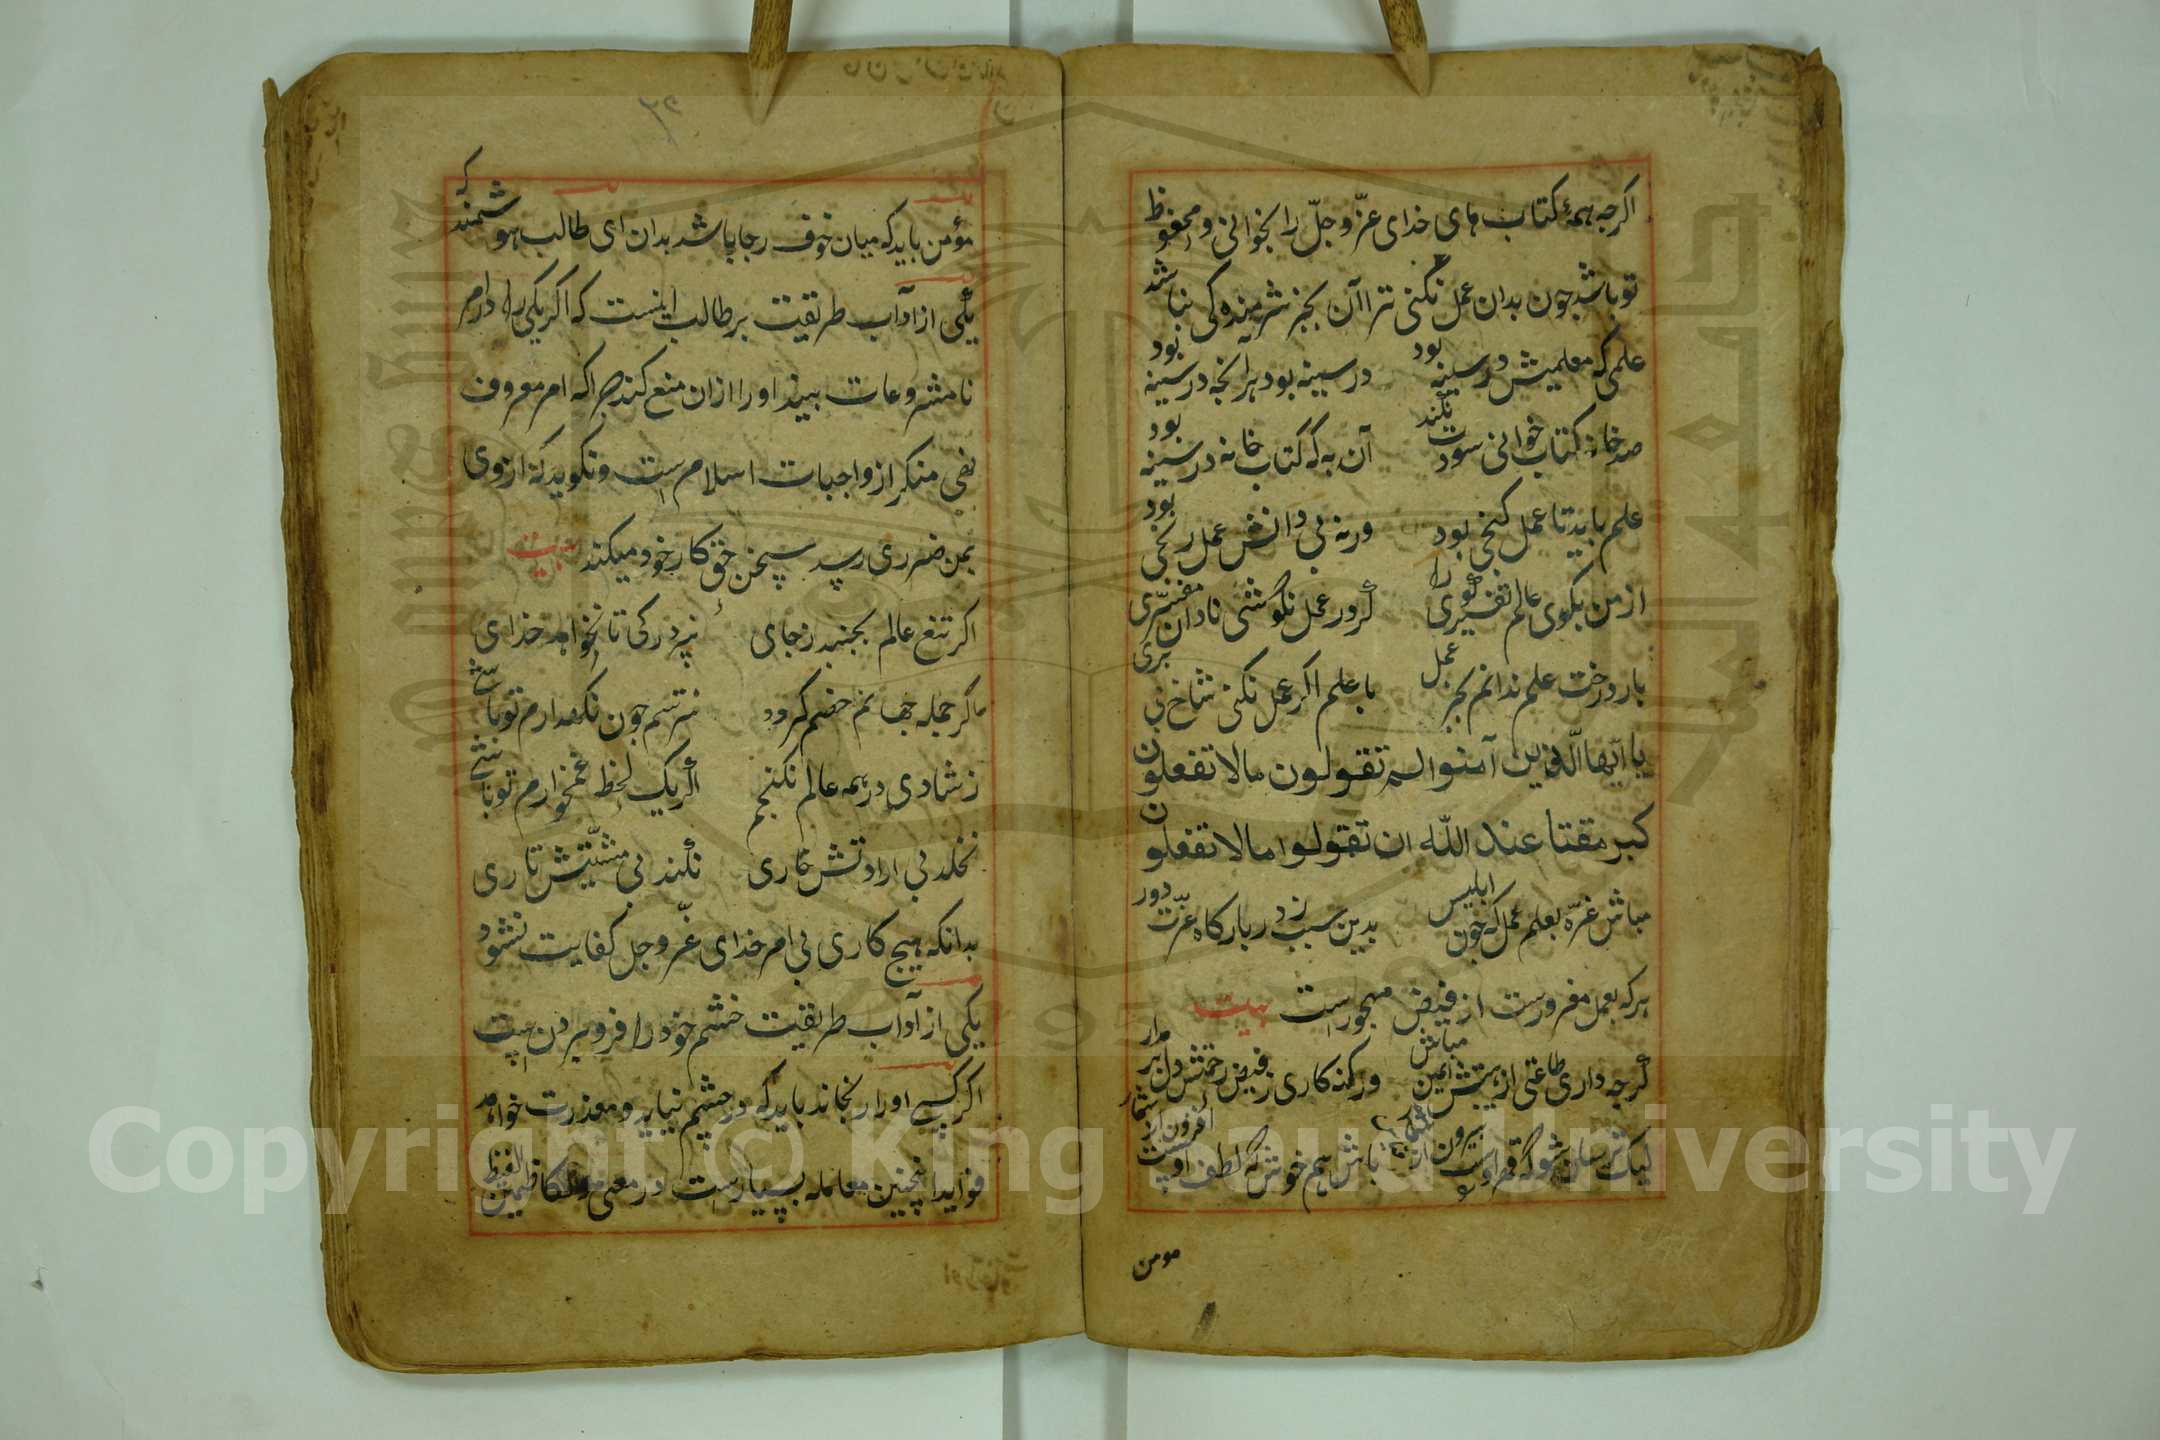 اگرچه همهٔ کتاب های خدای عزّ و جلّ را بخوانی و محفوظ
تو باشد چون بدان عمل نکنی ترا آن بجز شرمندگی نباشد
علمی که معلمیش در سینه بود در سینه بود هر آنچه در سینه بود
صد خانه کتاب خوانی سودت نکند آن به که کتاب خانه در سینه بود
علم باید تا عمل گنجی بود ورنه بی دانش عمل رنجی بود
از من بگوی عالم تفسیر گوی را گر در عمل نکوشی نادان مفسّری
بار درخت علم ندانم بجز عمل با علم اگر عمل نکنی شاخ بی بری
یا ایّها الّذین آمنوا لم تقولون مالا تفعلون
کبر مقتا عند اللّه ان تقولوا مالا تفعلون
مباش غرّه بعلم عمل که چون ابلیس بدین سبب ز در بارگاه عزّت دور
هرکه بعمل مغرورست از فیض مهجورست بیت
گرچه داری طاعتی از هیبتش ایمن مباش ور گنه کاری ز فیض رحمتش دل بر مدار
نیک ترسان شو که قهر اوست بیرون از باش هم خوش که لطف اوست افزون از شمار
مومن
مؤمن باید که میان خوف رجا باشد بدان ای طالب هوشمند که
یکی از آداب طریقیت بر طالب اینست که اگر یکی را در امر
نامشروعات بیند او را ازان منع کند چراکه امر معروف
نفی منکر از واجبات اسلام است و نکوید که ازوی
بمن ضرری رسد سخن حق کار خود میکند بیت
اگر تیغ عالم بجنبد ز جای نبرد رگی تا نخواهد خدای
اگر جمله جهانم خصم گردد نترسم چون نکهدارم تو باشی
ز شادی در همه عالم نکنجم اگر یک لحظ غمخوارم تو باشی
نخلد بی ارادتش خاری نکند بی مشیّتش تاری
بدانکه هیچ کاری بی امر خدای عزّ و جل کفایت نشود
یکی از آداب طریقیت خشم خود را فرو بردن است
اگر کسی او را رنجاند باید که در خشم نیاید و معذرت خواهد
فواید اینچنین معامله بسیارست در معنی والکاظمین الغیظ